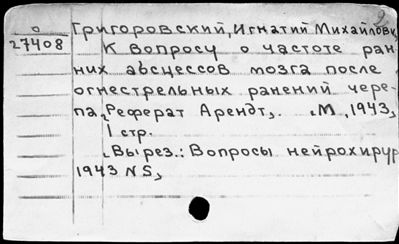 о Григоровский, Игнатий Михайлович
27408 К вопросу о частоте ран-
них абсцессов мозга после
огнестрельных ранений чере-
па. Реферат Арендт,. .М, 1943,
1 стр.
Вырез.: Вопросы нейрохирур
1943 N5,